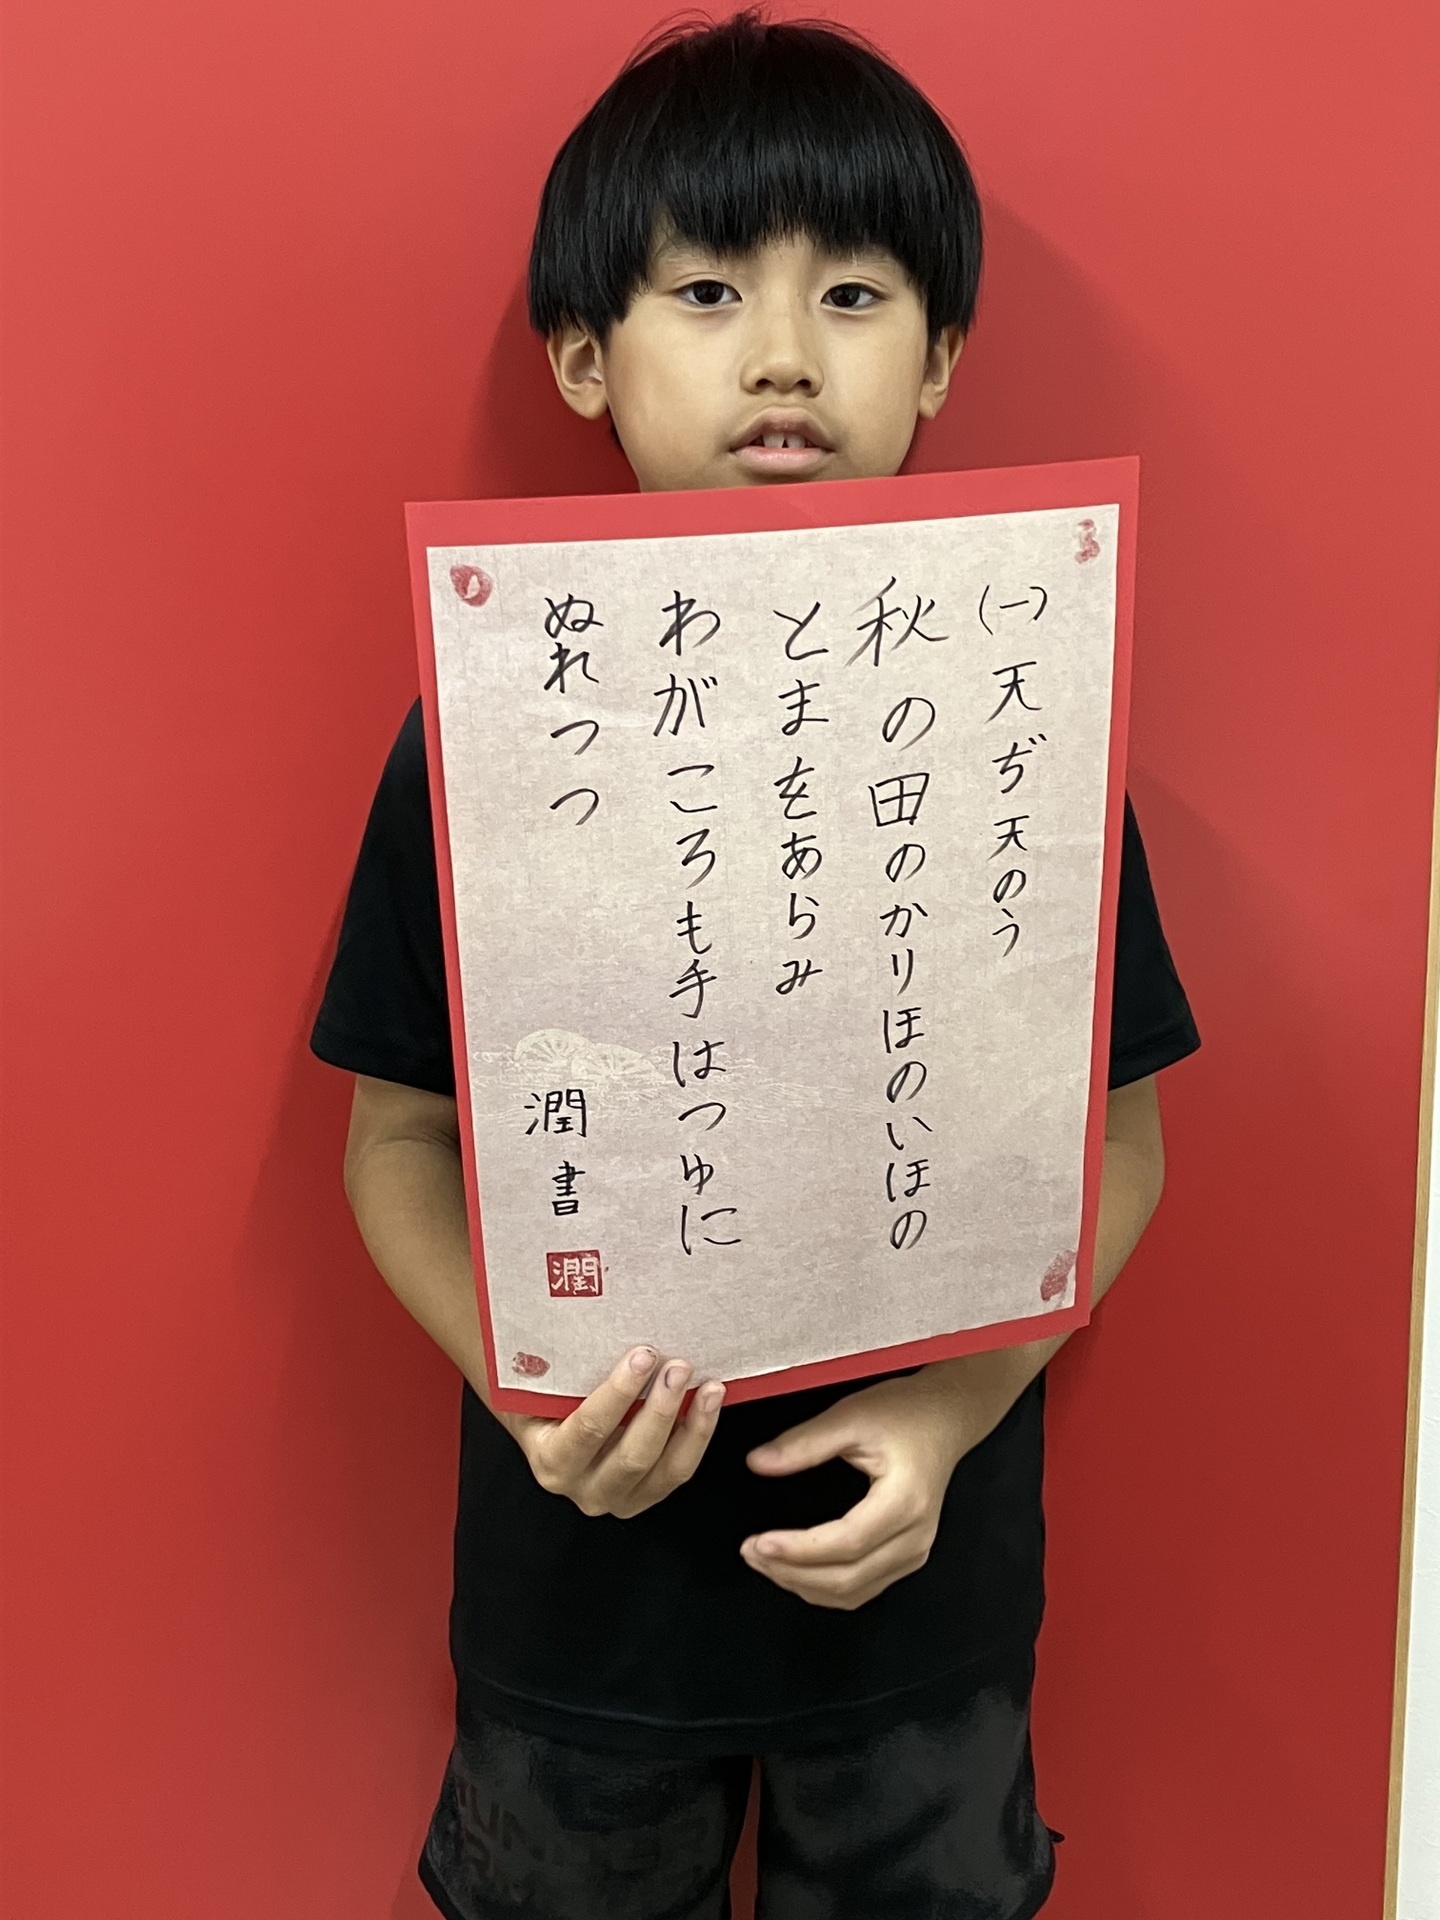 (一)天ぢ天のう
秋の田のかりほのいほの
とまをあらみ
わがころも手はつゆに
ぬれつつ
潤書
潤